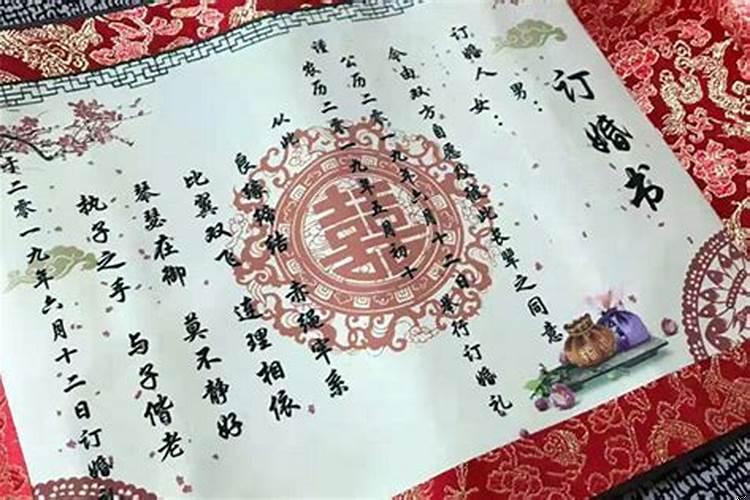 订婚书
男：
订婚人 女：
今由双方自愿及彼此长辈之同意
公历二零一九年六月十二日举行订婚礼
谨农历二零一九年五月初十
从此
良缘缔结 赤绳牢系
比翼双飞 连理相依
琴瑟在御 莫不静好
执子之手 与子偕老
于二零一九年六月十二日订婚
囍